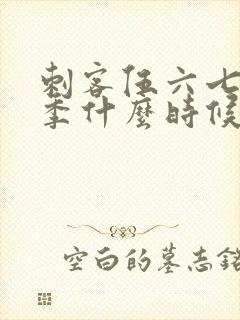 刺客伍六七
季什麼時候
空白的墓志銘